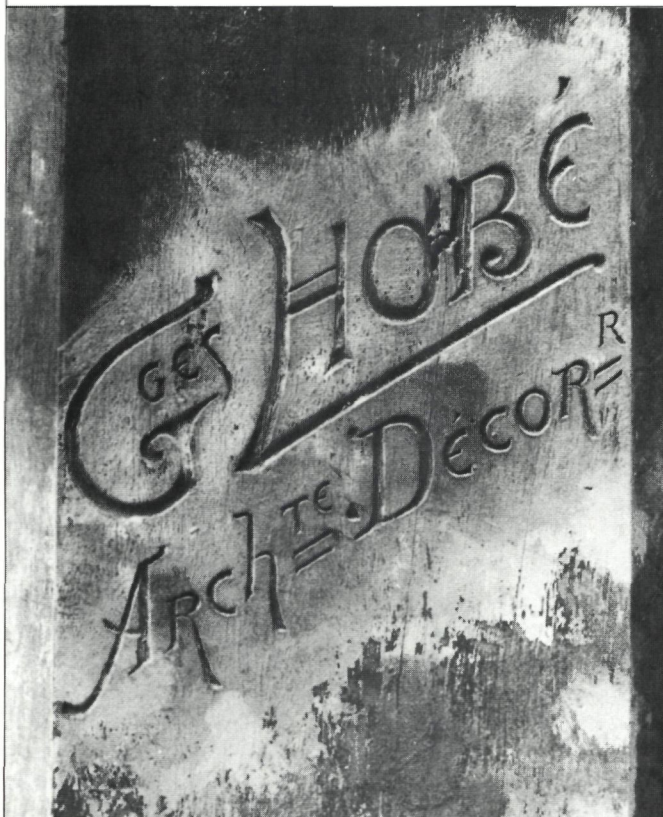 Gges HOBÉ
Archte. Décorr